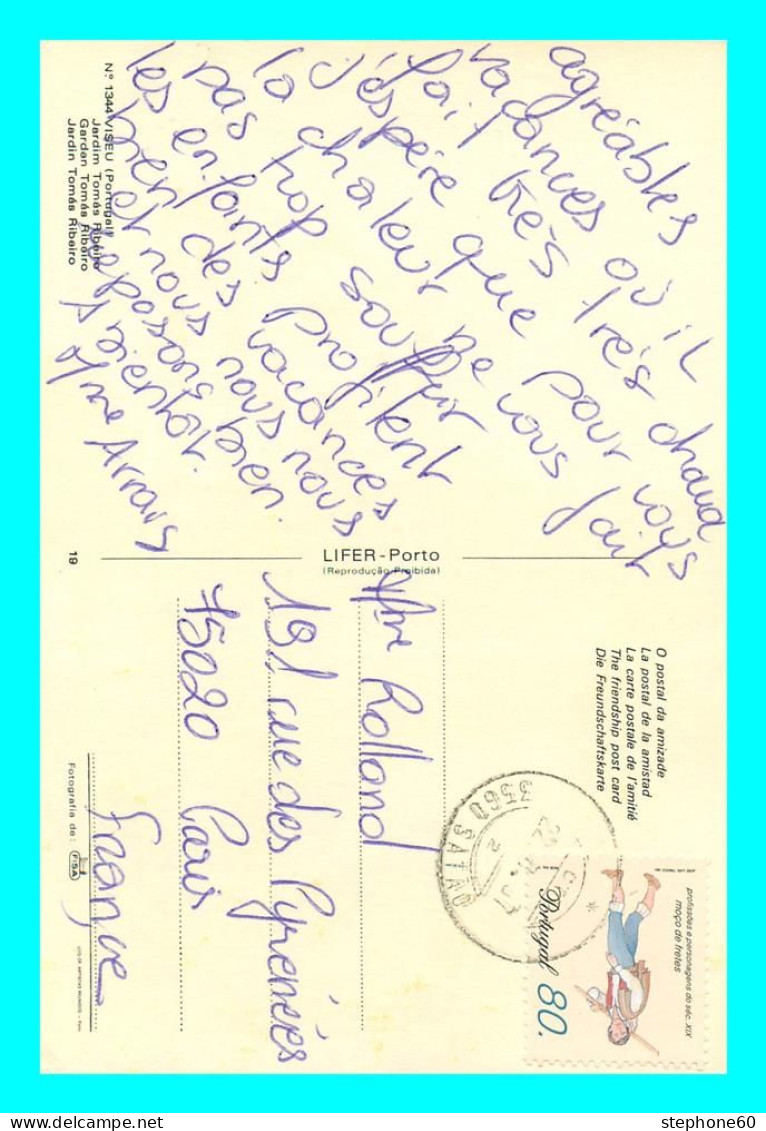 agréables
vacances où il
fait très très chaud
j'espère que pour vous
la chaleur ne vous fait
pas trop souffrir
les enfants profitent
bien des vacances
et nous nous nous
reposons bien.
A bientôt.
Mme Arrais
Nº 1344 VISEU (Portugal)
Jardim Tomás Ribeiro
Garden Tomás Ribeiro
Jardin Tomás Ribeiro
19
LIFER - Porto
(Reprodução Proibida)
O postal da amizade
La postal de la amistad
La carte postale de l'amitié
The friendship post card
Die Freundschaftskarte
profissões e personagens do séc. XIX
moço de fretes
Portugal 80.
3560 SATÃO
Mme Rolland
191 rue des Pyrenées
75020 Paris
France
Fotografia de: FISA
stephone60